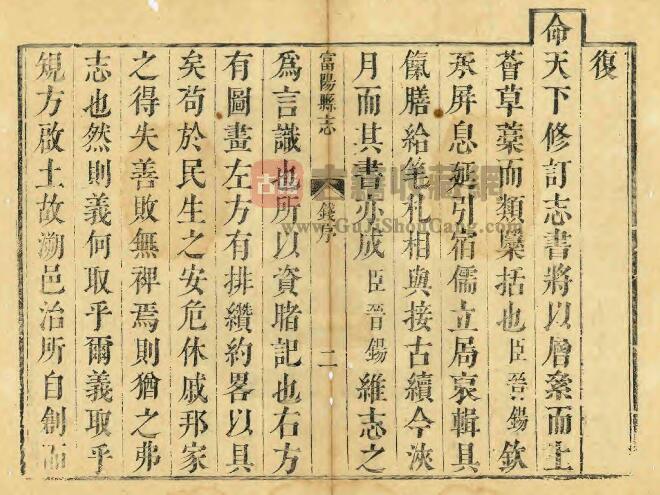 復
命天下修訂志書將以層絫而上
薈草藁而類括也臣晉錫欽
承屏息延引宿儒立局裒輯具
膳給筆札相與接古續今浹
月而其書亦成臣晉錫維志之
富陽縣志 錢序 二
爲言識也所以資睹記也右方
有圖畫左方有排纘約畧以具
矣苟於民生之安危休戚邦家
之得失善敗無裨焉則猶之弗
志也然則義何取乎爾義取乎
規方啟土故溯邑治所自創而
www.GuJiShouCang.com